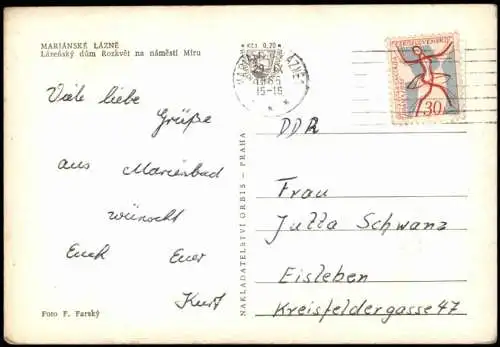 MARIÁNSKÉ LÁZNĚ
Lázeňský dům Rozkvět na náměstí Míru
Viele liebe
Grüße
aus Marienbad
wünscht
Euch Euer
Kurt
Foto F. Farský
NAKLADATELSTVÍ ORBIS - PRAHA
Kčs 0,20
15-16
30
DDR
Frau
Jutta Schwanz
Eisleben
Kreisfeldergasse 47